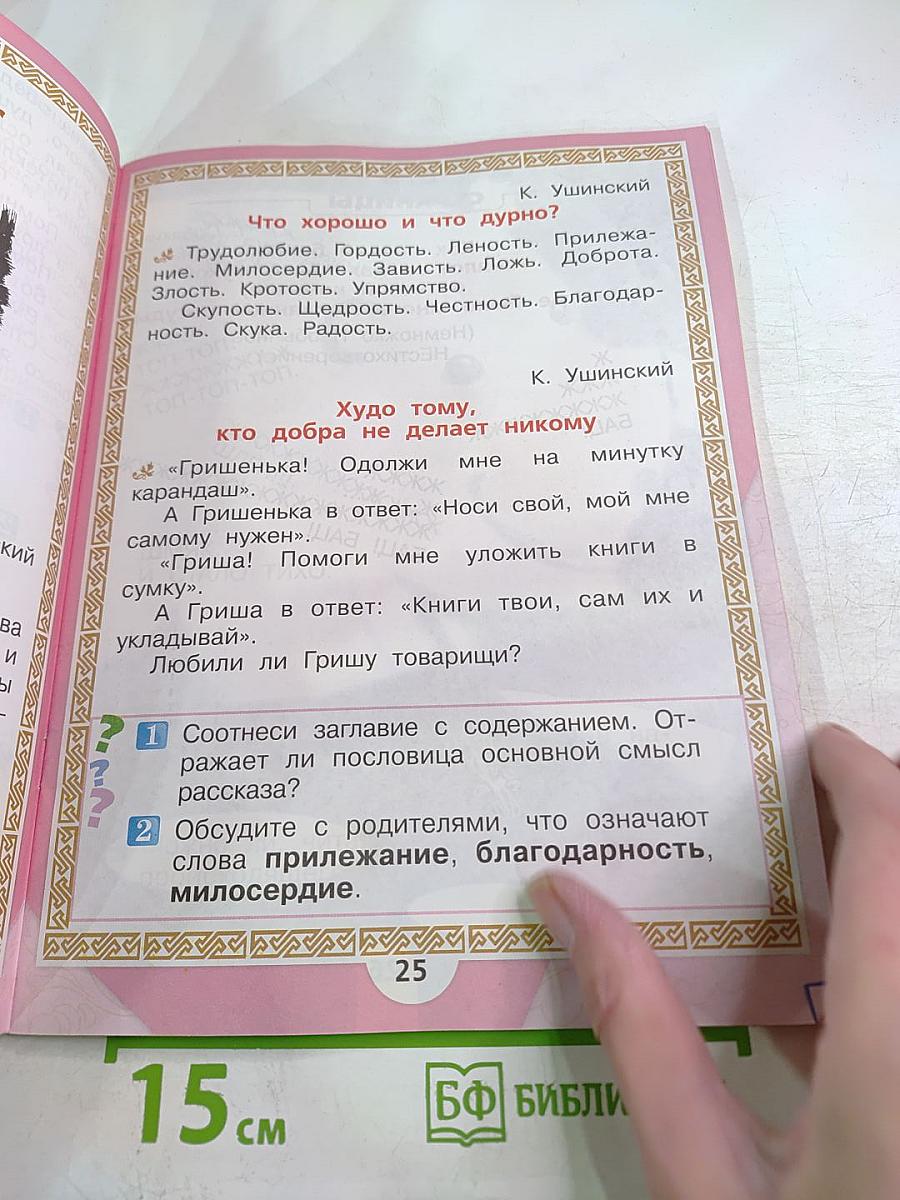 К. Ушинский
Что хорошо и что дурно?
Трудолюбие. Гордость. Леность. Прилежа-
ние. Милосердие. Зависть. Ложь. Доброта.
Злость. Кротость. Упрямство.
Скупость. Щедрость. Честность. Благодар-
ность. Скука. Радость.
К. Ушинский
Худо тому,
кто добра не делает никому
«Гришенька! Одолжи мне на минутку
карандаш».
А Гришенька в ответ: «Носи свой, мой мне
самому нужен».
«Гриша! Помоги мне уложить книги в
сумку».
А Гриша в ответ: «Книги твои, сам их и
укладывай».
Любили ли Гришу товарищи?
? 1 Соотнеси заглавие с содержанием. От-
? ражает ли пословица основной смысл
? рассказа?
2 Обсудите с родителями, что означают
слова прилежание, благодарность,
милосердие.
25
15 см
БФ